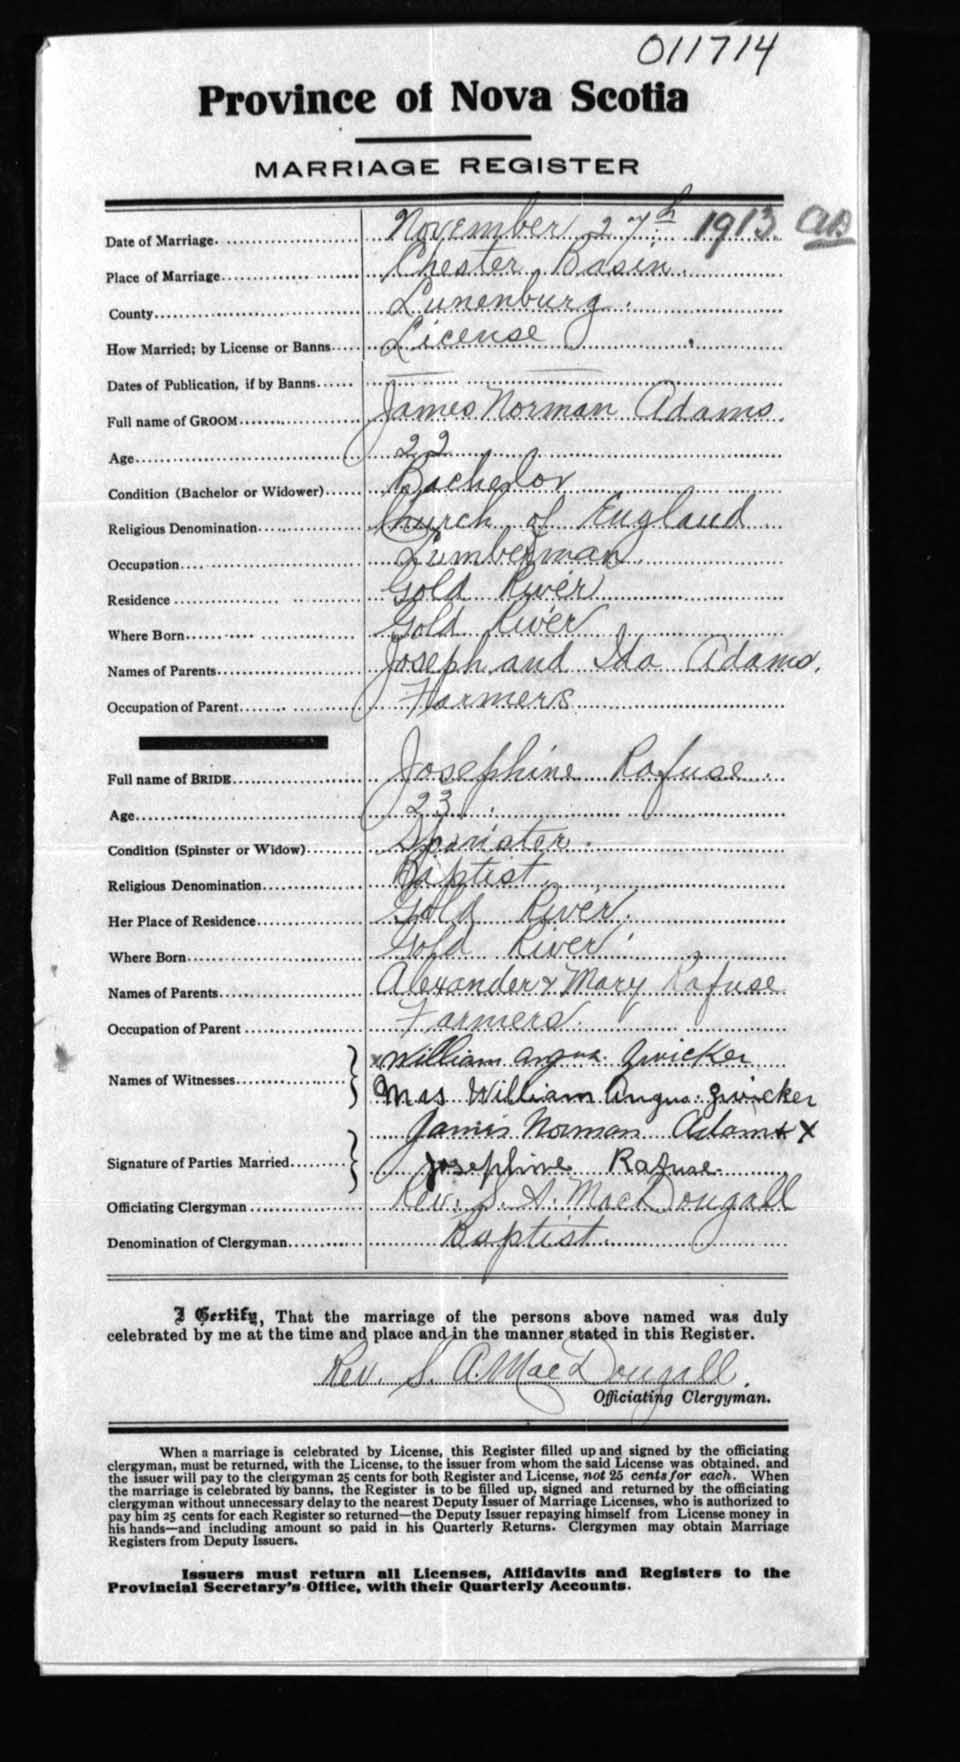 011714
Province of Nova Scotia
MARRIAGE REGISTER
Date of Marriage November 27th 1913
Place of Marriage Chester Basin.
County Lunenburg.
How Married; by License or Banns License
Dates of Publication, if by Banns
Full name of GROOM James Norman Adams
Age 22
Condition (Bachelor or Widower) Bachelor
Religious Denomination Church of England
Occupation Lumberman
Residence Gold River
Where Born Gold River
Names of Parents Joseph and Ida Adams.
Occupation of Parent Farmers
Full name of BRIDE Josephine Rafuse.
Age 23.
Condition (Spinster or Widow) Spinister.
Religious Denomination Baptist
Her Place of Residence Gold River.
Where Born Gold River
Names of Parents Alexander & Mary Rafuse
Occupation of Parent Farmers.
x William Angus. Zwicker
Names of Witnesses
Mrs William Angus. Zwicker
James Norman Adams x
Signature of Parties Married Josephine Rafuse.
Officiating Clergyman Rev. S. A. MacDougall
Denomination of Clergyman Baptist.
I Certify, That the marriage of the persons above named was duly
celebrated by me at the time and place and in the manner stated in this Register.
Rev. S. A. MacDougall.
Officiating Clergyman.
When a marriage is celebrated by License, this Register filled up and signed by the officiating
clergyman, must be returned, with the License, to the issuer from whom the said License was obtained, and
the issuer will pay to the clergyman 25 cents for both Register and License, not 25 cents for each. When
the marriage is celebrated by banns, the Register is to be filled up, signed and returned by the officiating
clergyman without unnecessary delay to the nearest Deputy Issuer of Marriage Licenses, who is authorized to
pay him 25 cents for each Register so returned—the Deputy Issuer repaying himself from License money in
his hands—and including amount so paid in his Quarterly Returns. Clergymen may obtain Marriage
Registers from Deputy Issuers.
Issuers must return all Licenses, Affidavits and Registers to the
Provincial Secretary's Office, with their Quarterly Accounts.